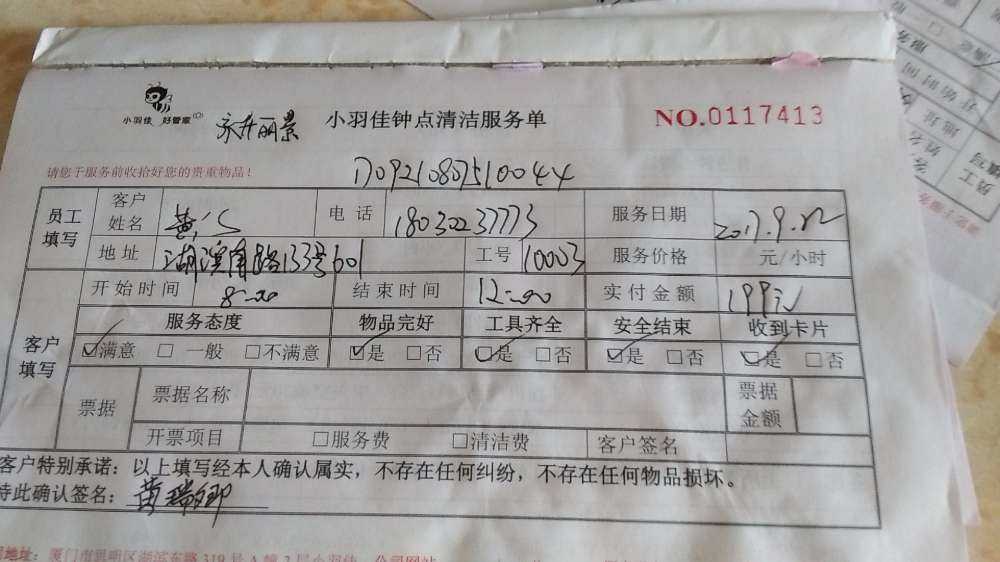 小羽佳 好管家
永升丽景 小羽佳钟点清洁服务单 NO.0117413
请您于服务前收拾好您的贵重物品！
D09210807510044
员工填写 客户姓名 黄 电话 18030237773 服务日期 2017.9.22
地址 湖滨南路133号601 工号 10003 服务价格 元/小时
开始时间 8:00 结束时间 12:00 实付金额 199元
客户填写 服务态度 物品完好 工具齐全 安全结束 收到卡片
☑满意 □一般 □不满意 ☑是 □否 ☑是 □否 ☑是 □否 ☑是 □否
票据 票据名称 票据金额
开票项目 □服务费 □清洁费 客户签名
客户特别承诺：以上填写经本人确认属实，不存在任何纠纷，不存在任何物品损坏。
特此确认签名：黄瑞卿
地址：厦门市思明区湖滨东路319号A幢2层小羽佳 公司网站